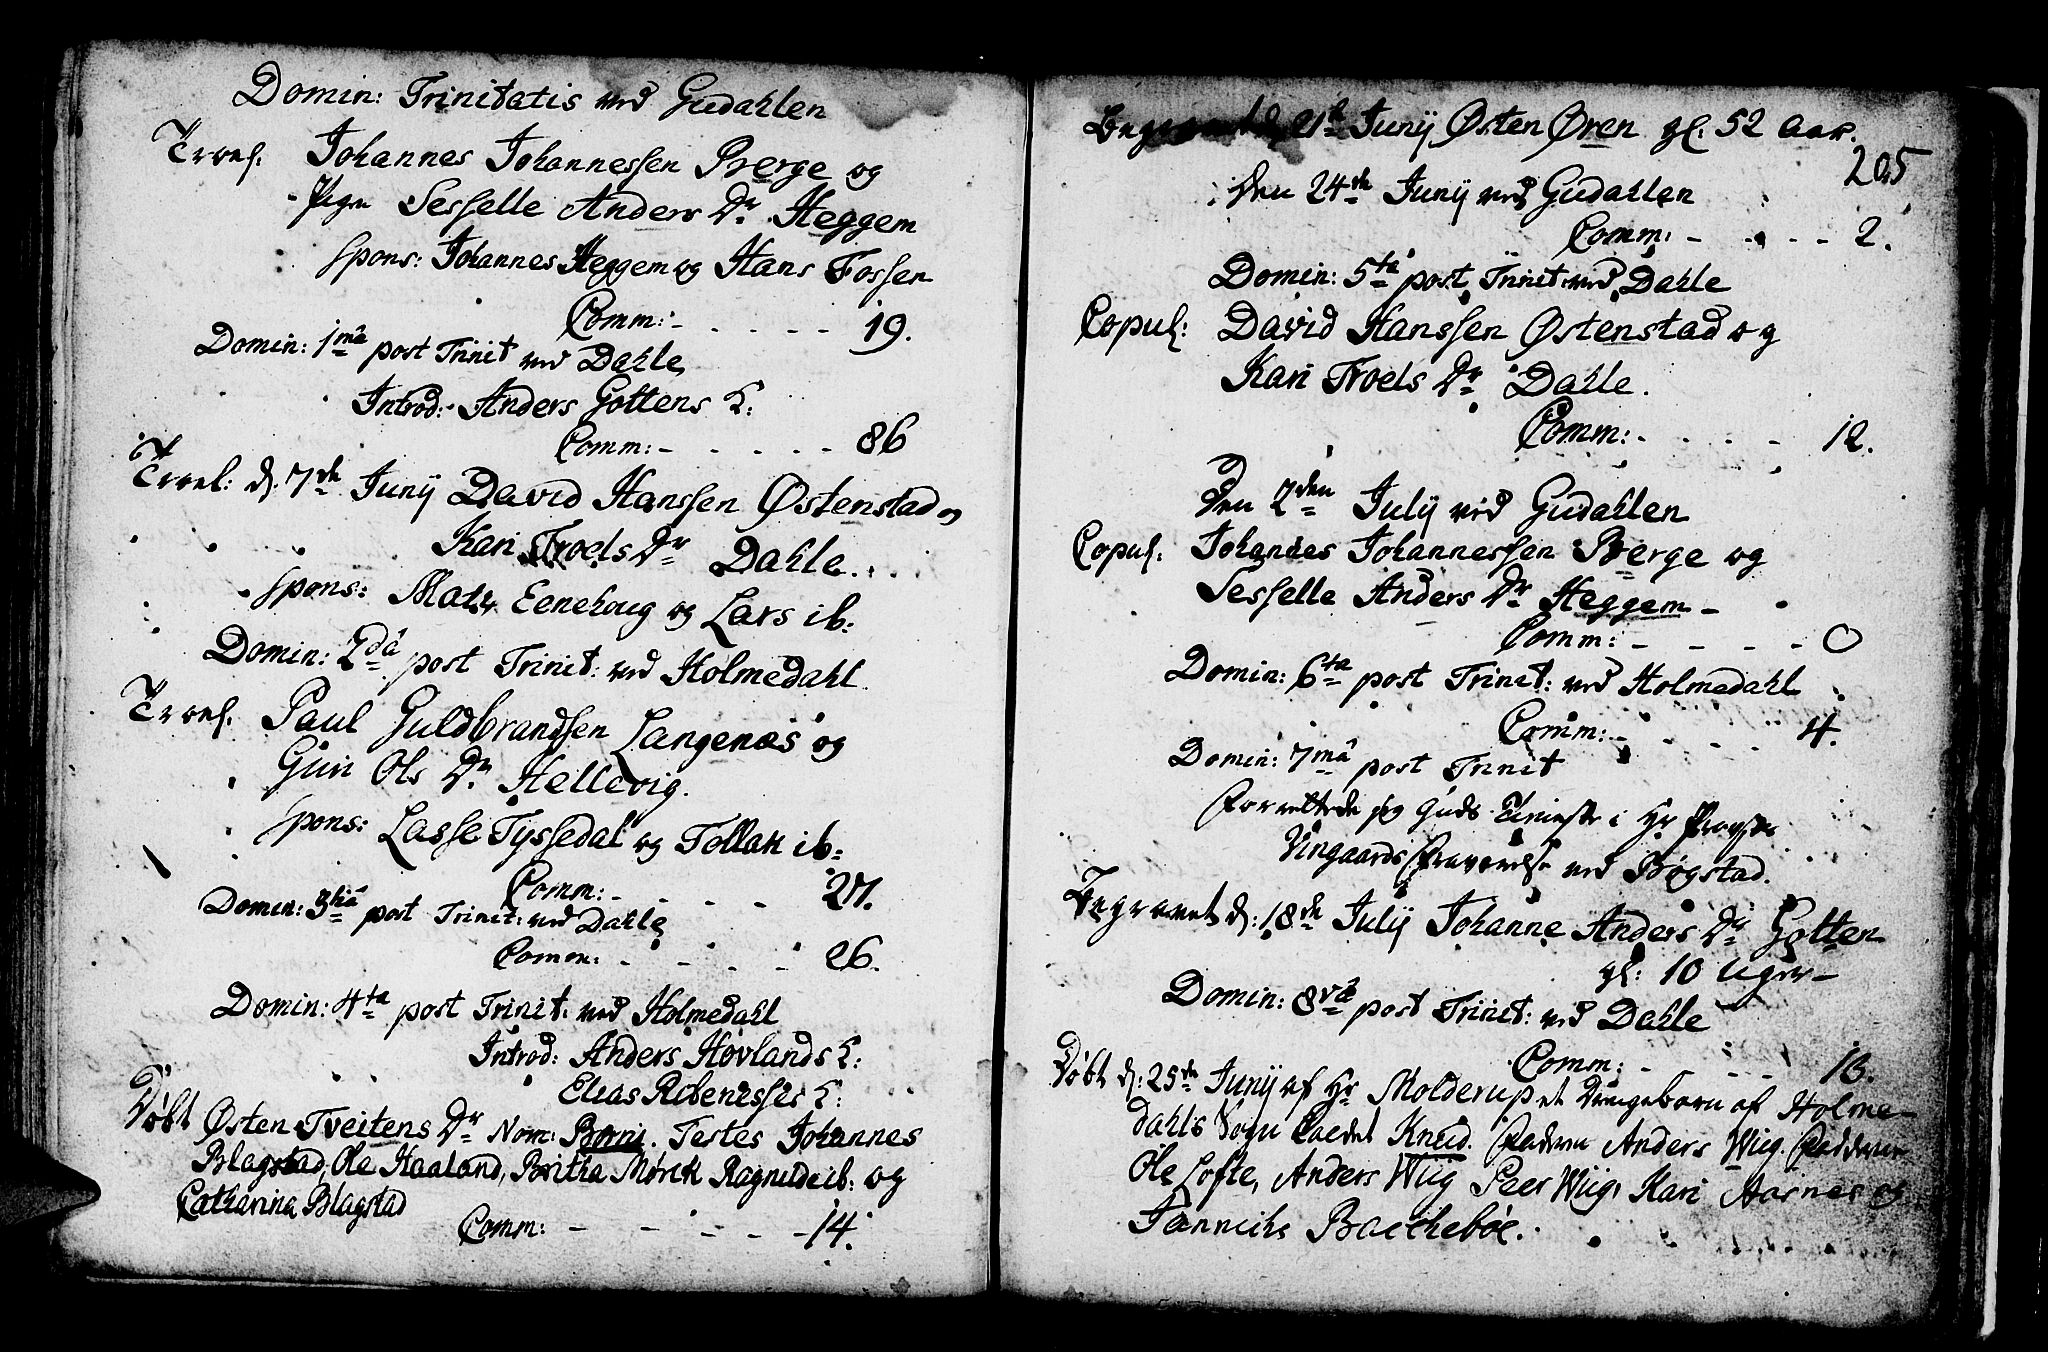 Domin: Trinitatis ved Gudahlen
Trol. Johannes Johannessen Berge og
Pige Sesselle Anders Dr. Heggem
Spons: Johannes Heggem og Hans Fossen
Comm: - - - - - 19.
Domin: 1mâ post Trinit ved Dahle
Introd: Anders Gottens K:
Comm: - - - - - 86
Trol: d. 7de Junij David Hanssen Østenstad og
Kari Troels Dr Dahle.
Spons: Mads Eenehoug og Lars ib:
Domin: 2dâ post Trinit: ved Holmedahl
Trol. Paul Guldbrandsen Langenæs og
Guri Ols Dr Hellevig.
Spons: Lasse Tyssedal og Tollak ib:
Comm: - - - - 27.
Domin: 3tiâ post Trinit: ved Dahle
Comm: - - - - 26.
Domin: 4ta post Trinit: ved Holmedahl
Introd: Anders Hovlands K:
Elias K:
Døbt Østen Tveitens Dr Nom: Berni. Testes Johannes
Blagstad, Ole Haaland, Britha Mørck Ragnilde ib: og
Catharina Blagstad
Comm: - - - - - 14.
Begravet d. 21de Junij Østen Øren gl. 52 Aar.
205
Den 24de Junij ved Gudahlen
Comm: - - - - 2.
Domin: 5tâ post Trinit: ved Dahle
Copul: David Hanssen Østenstad og
Kari Troels Dr Dahle.
Comm: - - - - 12.
Den 2den Julij ved Gudahlen
Copul: Johannes Johannessen Berge og
Sesselle Anders Dr Heggem -
Comm: - - - - 0
Domin: 6ta post Trinit: ved Holmedahl
Comm: - - - - 4.
Domin: 7mâ post Trinit
Forrettede jeg Guds Tieneste i Hr Provste
Vingaards Fraværelse ved Bøgstad.
Begravet d: 18de Julij Johanne Anders Dr Gotten
gl: 10 Uger -
Domin: 8vâ post Trinit: ved Dahle
Comm: - - - - 18.
Døbt d: 25de Junij af Hr Molderup et Drengebarn af Holme-
dahls Sogn kaldet Knud. Faderen Anders Wiig. Fadderne
Ole Lofte, Anders Wiig Peer Wiig, Kari Aarnes og
Jannicke Backebøe.